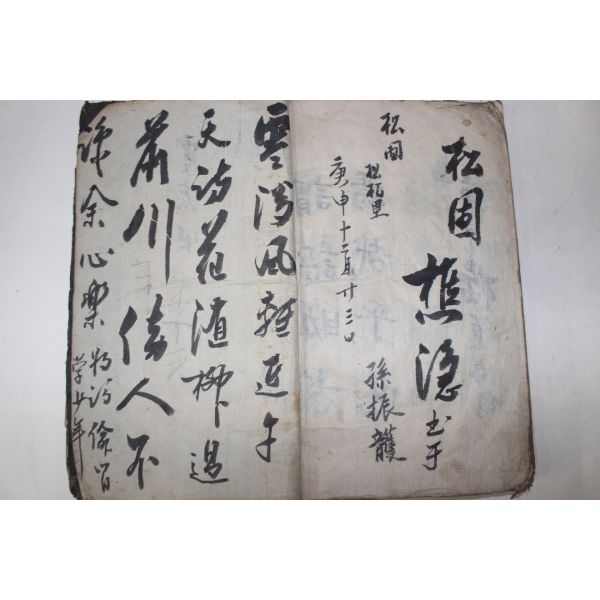 松固樵隱書于
孫振護
庚申十二月廿三日
松柏里
松固
雲淡風輕近午
天訪花隨柳過
前川傍人不
識余心樂將謂偷閑
学少年